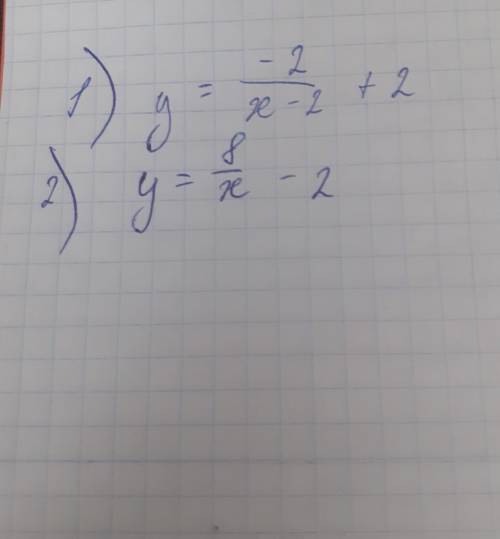 1) y = \frac{-2}{x-2} + 2
2) y = \frac{8}{x} - 2